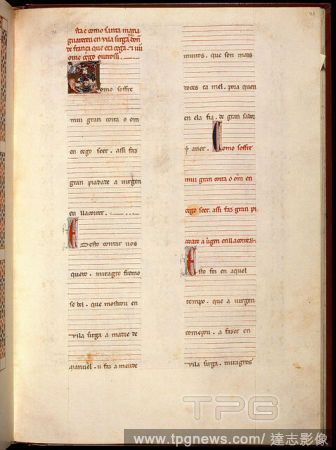 sta e como santa maria
guareceu en vila sirga don
de frança que era cega. τ un
ome cego outrossi.
Como soffre
mui gran coita o om
en cego seer. assi faz
gran piadade a uirgen
en llacorrer.
E desto contar uos
quero. miragre fremo
so. que mostrou en
vila sirga a madre de
manuel. τ faz a meude
muitos. que son mais
doces ca mel. pera quen
en ela fia. de gran sabor
τ amor. Como soffre
mui gran coita o om en
cego seer. assi faz gran pi
a uirgen en llacorrer.
Esto foi en aquel
tempo. que a uirgen
começou. a fazer en
vila sirga. miragres
TPG
www.tpgnews.com / 達志影像